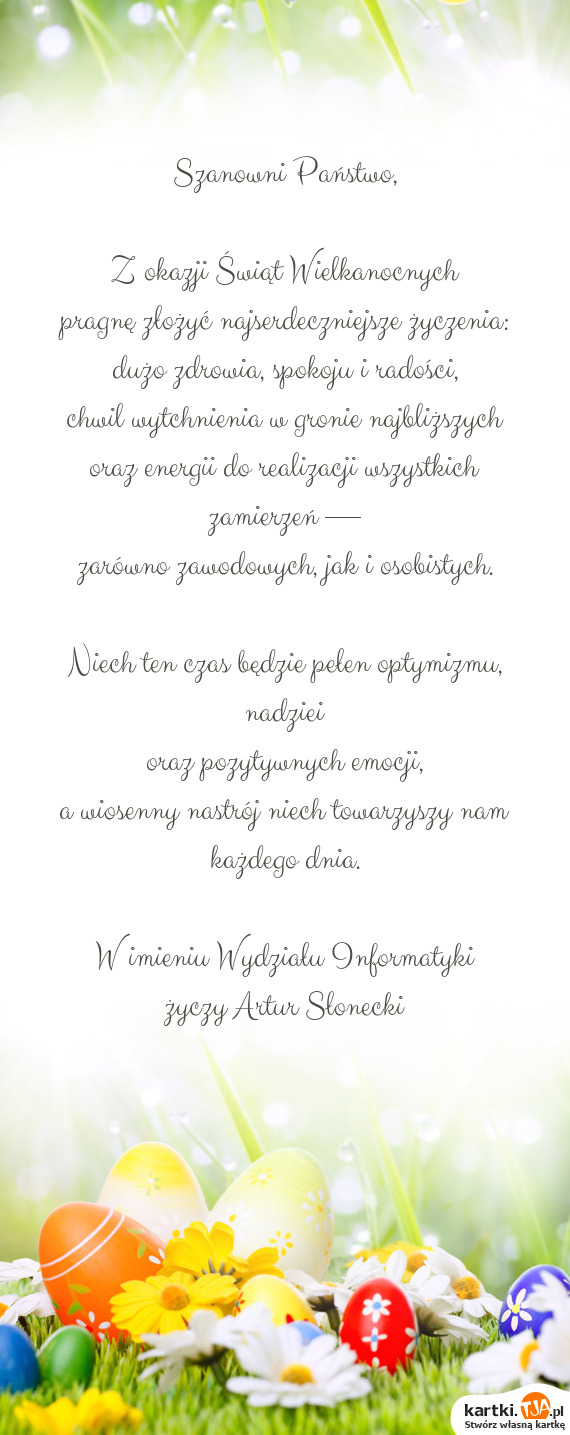 Szanowni Państwo,
Z okazji Świąt Wielkanocnych
pragnę złożyć najserdeczniejsze życzenia:
dużo zdrowia, spokoju i radości,
chwil wytchnienia w gronie najbliższych
oraz energii do realizacji wszystkich
zamierzeń —
zarówno zawodowych, jak i osobistych.
Niech ten czas będzie pełen optymizmu,
nadziei
oraz pozytywnych emocji,
a wiosenny nastrój niech towarzyszy nam
każdego dnia.
W imieniu Wydziału Informatyki
życzy Artur Słonecki
kartki.TJA.pl
Stwórz własną kartkę